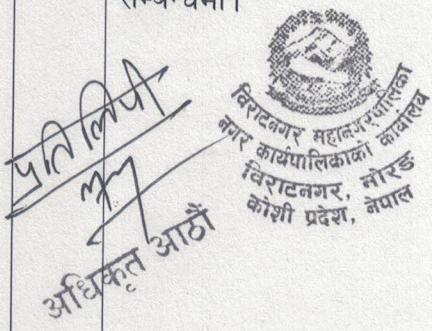 सम्बन्धमा।
प्रतिलिपी
अधिकृत आठौं
विराटनगर महानगरपालिका
नगर कार्यपालिकाको कार्यालय
विराटनगर, मोरङ
कोशी प्रदेश, नेपाल